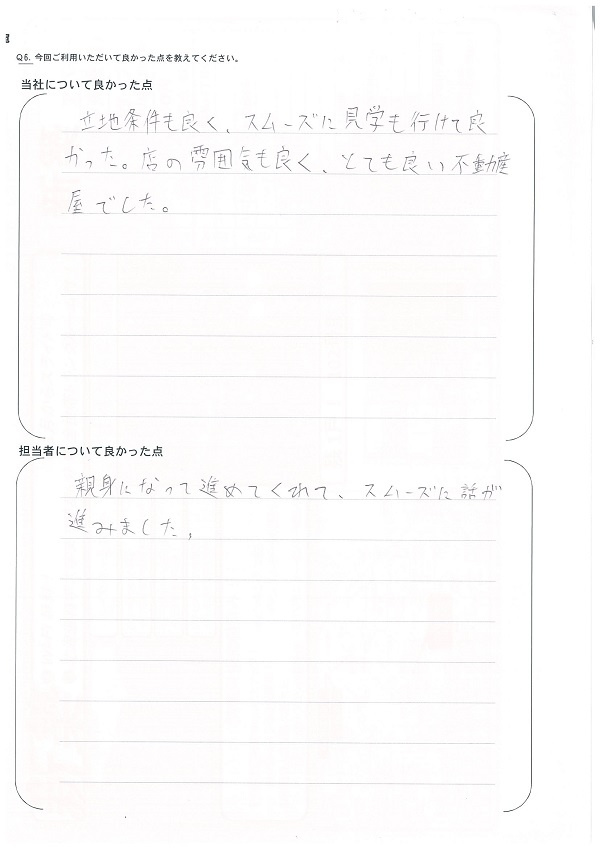 Q6. 今回ご利用いただいて良かった点を教えてください。
当社について良かった点
立地条件も良く、スムーズに見学も行けて良
かった。店の雰囲気も良く、とても良い不動産
屋でした。
担当者について良かった点
親身になって進めてくれて、スムーズに話が
進みました,